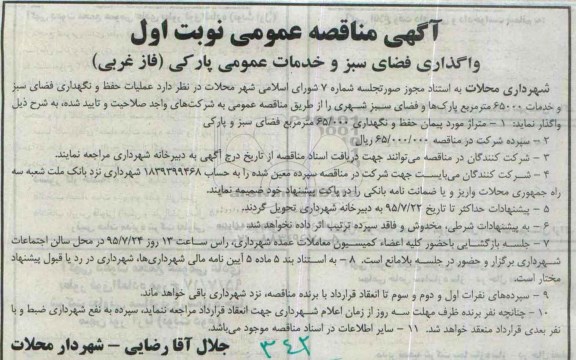 آگهی مناقصه عمومی نوبت اول
واگذاری فضای سبز و خدمات عمومی پارکی (فاز غربی)
شهرداری محلات به استناد مجوز صورتجلسه شماره ۷ شورای اسلامی شهر محلات در نظر دارد عملیات حفظ و نگهداری فضای سبز
و خدمات ۶۵۰۰۰ مترمربع پارک‌ها و فضای سبز شهری را از طریق مناقصه عمومی به شرکت‌های واجد صلاحیت و تایید شده، به شرح ذیل
واگذار نماید: ۱ - متراژ مورد پیمان حفظ و نگهداری ۶۵/۰۰۰ مترمربع فضای سبز و پارکی
۲ - سپرده شرکت در مناقصه ۶۵/۰۰۰/۰۰۰ ریال
۳ - شرکت کنندگان در مناقصه می‌توانند جهت دریافت اسناد مناقصه از تاریخ درج آگهی به دبیرخانه شهرداری مراجعه نمایند.
۴ - شرکت کنندگان می‌بایست جهت شرکت در مناقصه سپرده معین شده را به حساب ۱۸۳۹۳۹۹۴۶۸ شهرداری نزد بانک ملت شعبه سه
راه جمهوری محلات واریز و یا ضمانت نامه بانکی را در پاکت پیشنهاد خود ضمیمه نمایند.
۵ - پیشنهادات حداکثر تا تاریخ ۹۵/۷/۲۲ به دبیرخانه شهرداری تحویل گردند.
۶ - به پیشنهادات شرطی، مخدوش و فاقد سپرده ترتیب اثر داده نخواهد شد.
۷ - جلسه بازگشایی باحضور کلیه اعضاء کمیسیون معاملات عمده شهرداری، راس ساعت ۱۳ روز ۹۵/۷/۲۴ در محل سالن اجتماعات
شهرداری برگزار و حضور در جلسه بلامانع است. ۸ - به استناد بند ۵ ماده ۵ آیین نامه مالی شهرداری‌ها، شهرداری در رد یا قبول پیشنهاد
مختار است.
۹ - سپرده‌های نفرات اول و دوم و سوم تا انعقاد قرارداد با برنده مناقصه، نزد شهرداری باقی خواهد ماند.
۱۰ - چنانچه نفر برنده ظرف مهلت سه روز از زمان اعلام شهرداری جهت انعقاد قرارداد مراجعه ننماید، سپرده به نفع شهرداری ضبط و با
نفر بعدی قرارداد منعقد خواهد شد. ۱۱ - سایر اطلاعات در اسناد مناقصه موجود می‌باشد.
جلال آقا رضایی - شهردار محلات
۳۴۲